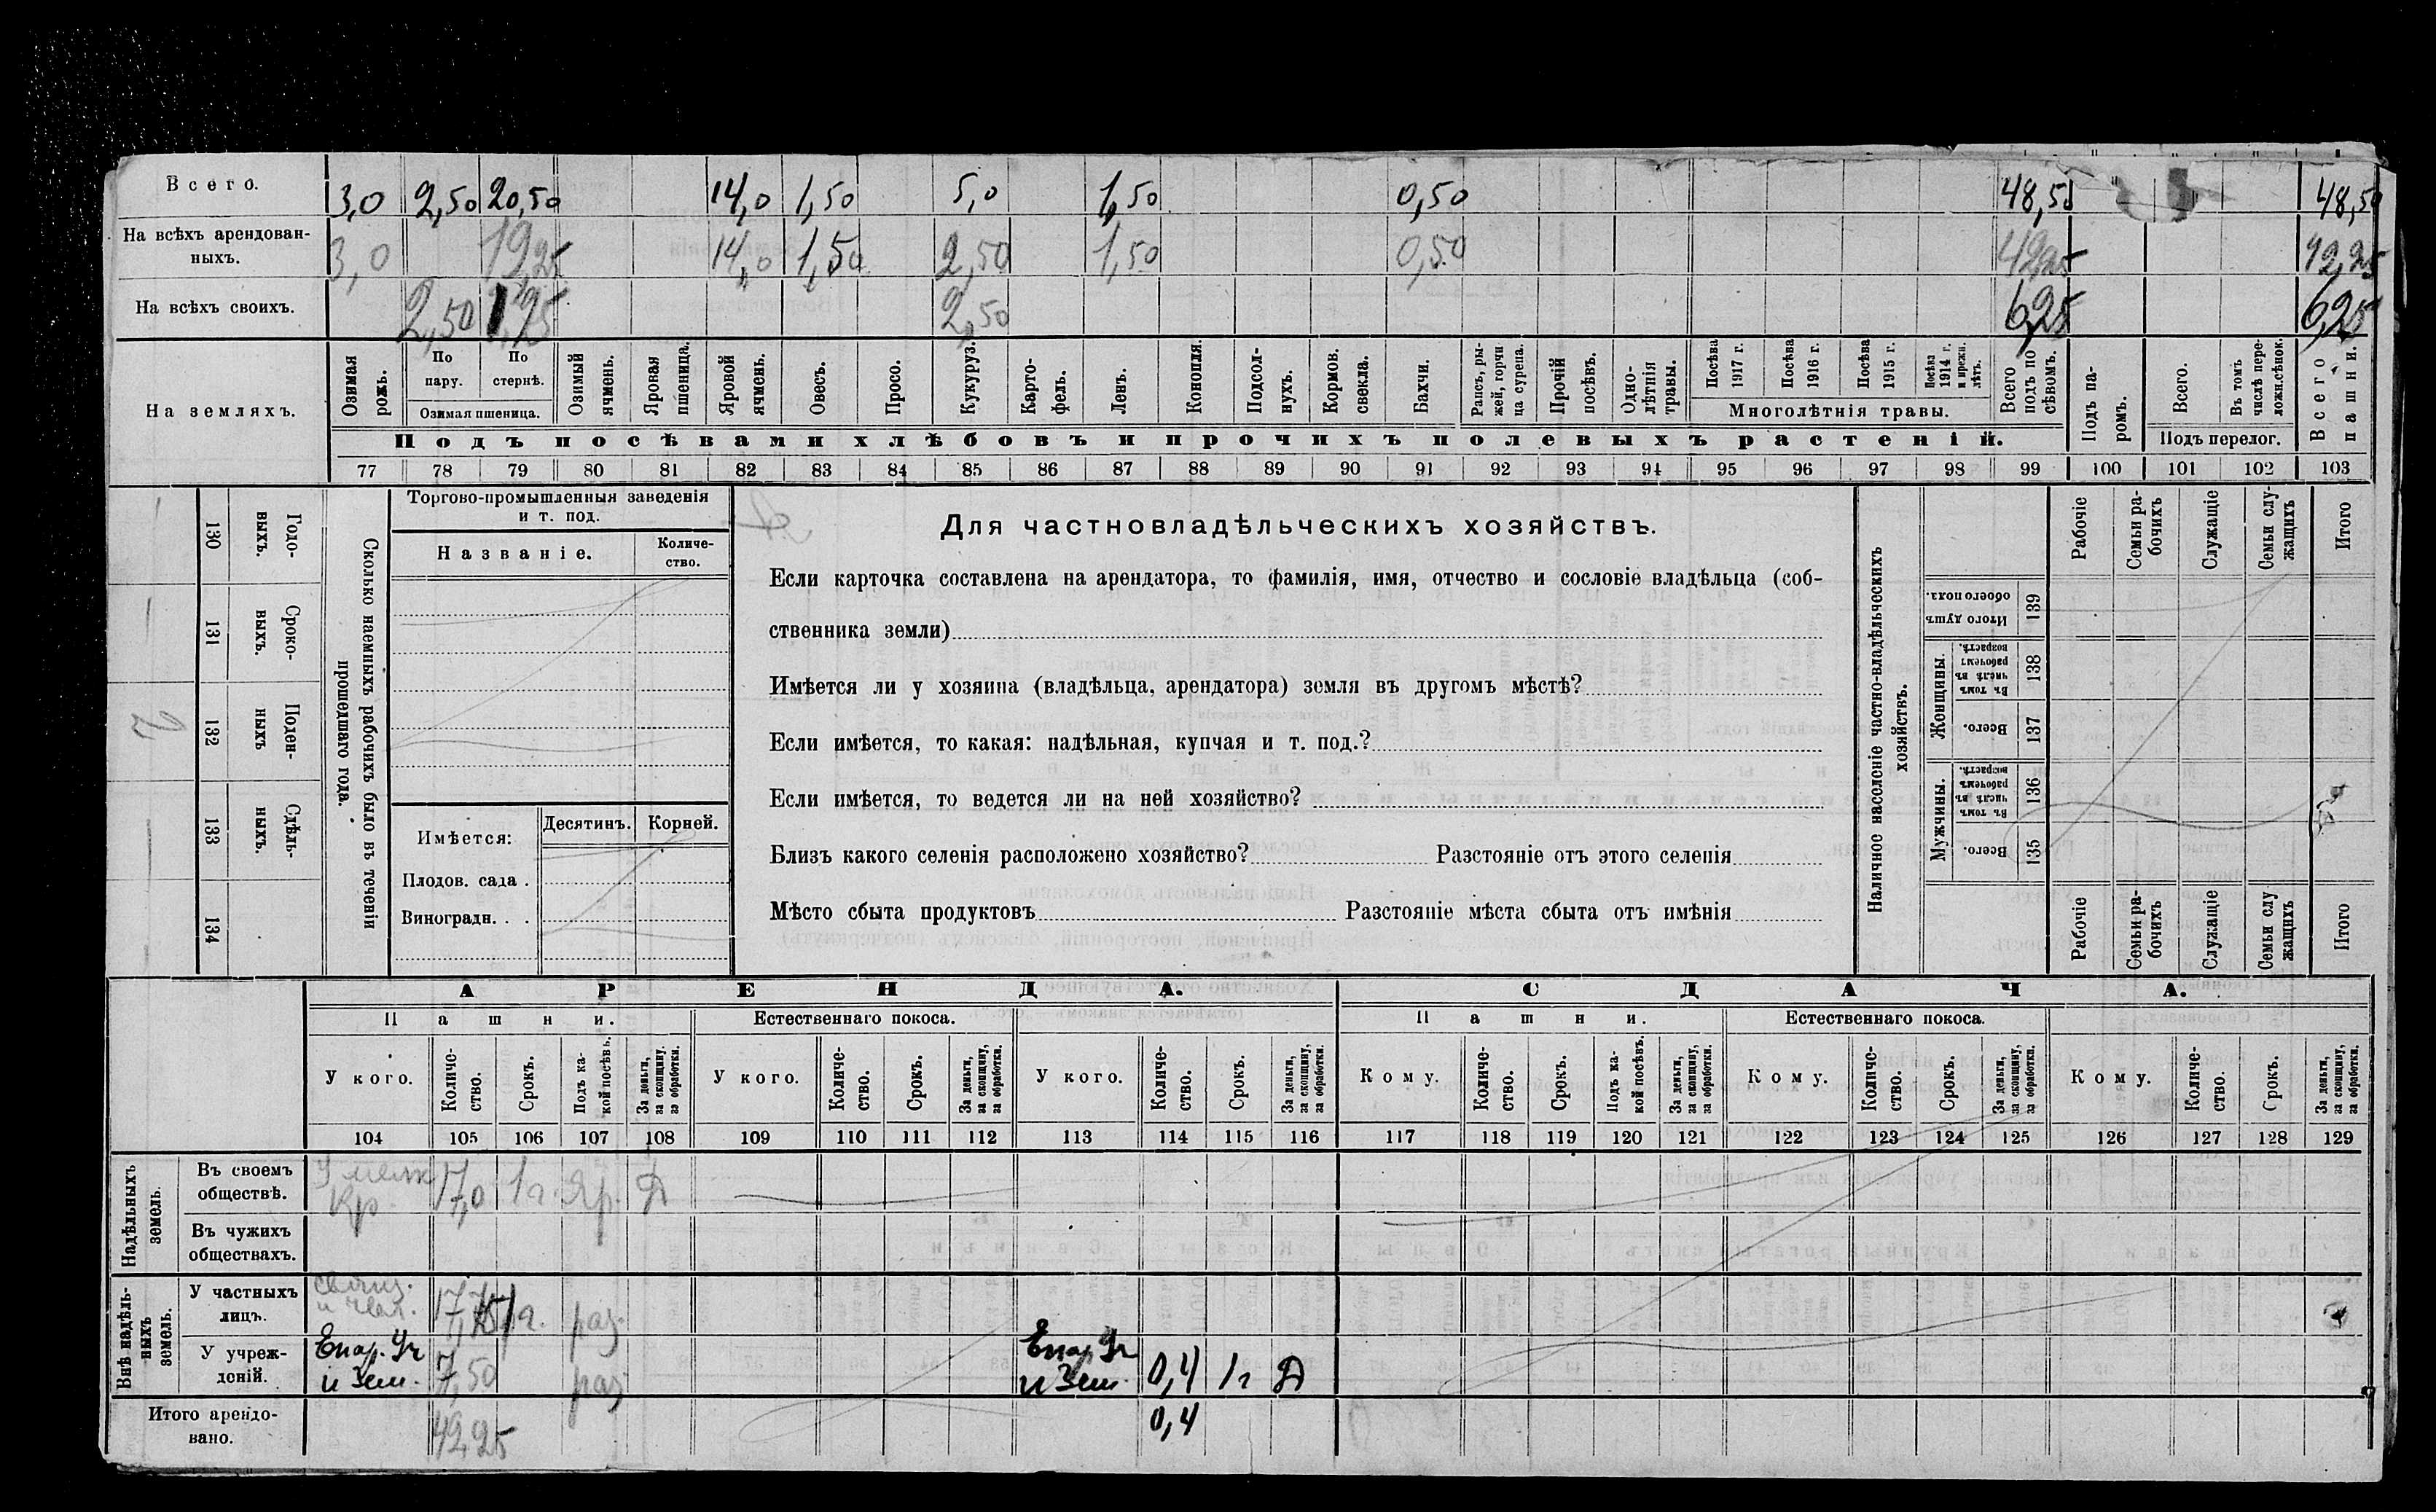 Всего. 3,0 2,50 20,50 14,0 1,50 5,0 1,50 0,50 48,50 48,50
На всѣхъ арендован-
ныхъ. 3,0 19,25 14,0 1,50 2,50 1,50 0,50 42,25 42,25
На всѣхъ своихъ. 2,50 1,25 2,50 6,25 6,25
На земляхъ.
Озимая рожь.
По пару.
По стернѣ.
Озимая пшеница.
Озимый ячмень.
Яровая пшеница.
Яровой ячмень.
Овесъ.
Просо.
Кукуруз.
Карто-
фель.
Ленъ.
Конопля.
Подсол-
нухъ.
Кормов.
свекла.
Бахчи.
Рапсъ, ры-
жей, горчи
ца сурепа.
Прочій
посѣвъ.
Одно-
лѣтнія
травы.
Посѣва
1917 г.
Посѣва
1916 г.
Посѣва
1915 г.
Посѣва
1914 г.
и прежн.
лѣтъ.
Многолѣтнія травы.
Всего
подъ по
сѣвомъ.
Подъ па-
ромъ.
Всего.
Въ томъ
числѣ пере-
ложн.сѣнок.
Подъ перелог.
Всего
пашни.
Подъ посѣвами хлѣбовъ и прочихъ полевыхъ растеній.
77 78 79 80 81 82 83 84 85 86 87 88 89 90 91 92 93 94 95 96 97 98 99 100 101 102 103
130 Годо-
выхъ.
131 Сроко-
ныхъ.
132 Поден-
ныхъ
133 Сдѣль-
ныхъ.
134
Сколько наемныхъ рабочихъ было въ теченіи
прошедшаго года.
Торгово-промышленныя заведенія
и т. под.
Названіе.
Количе-
ство.
Имѣется:
Десятинъ. Корней.
Плодов. сада .
Виноградн. . .
Для частновладѣльческихъ хозяйствъ.
Если карточка составлена на арендатора, то фамилія, имя, отчество и сословіе владѣльца (соб-
ственника земли)
Имѣется ли у хозяина (владѣльца, арендатора) земля въ другомъ мѣстѣ?
Если имѣется, то какая: надѣльная, купчая и т. под.?
Если имѣется, то ведется ли на ней хозяйство?
Близъ какого селенія расположено хозяйство? Разстояніе отъ этого селенія
Мѣсто сбыта продуктовъ Разстояніе мѣста сбыта отъ имѣнія
Наличное населеніе частно-владѣльческихъ
хозяйствъ.
Рабочіе
Семьи ра-
бочихъ
Служащіе
Семьи слу-
жащихъ
Итого
Итого душъ
обоего пола.
139
Женщины.
Въ томъ
числѣ въ
рабочемъ
возрастѣ.
138
Всего.
137
Мужчины.
Въ томъ
числѣ въ
рабочемъ
возрастѣ.
136
Всего.
135
Рабочіе
Семьи ра-
бочихъ
Служащіе
Семьи слу
жащихъ
Итого
АРЕНДА.
СДАЧА.
Пашни.
Естественнаго покоса.
Пашни.
Естественнаго покоса.
У кого.
Количе-
ство.
Срокъ.
Подъ ка-
кой посѣвъ.
За деньги,
за скопщину,
за обработки.
У кого.
Количе-
ство.
Срокъ.
За деньги,
за скопщину,
за обработки.
У кого.
Количе-
ство.
Срокъ.
За деньги,
за скопщину,
за обработки.
Кому.
Количе-
ство.
Срокъ.
Подъ ка-
кой посѣвъ.
За деньги,
за скопщину,
за обработки.
Кому.
Количе-
ство.
Срокъ.
За деньги,
за скопщину,
за обработки.
Кому.
Количе-
ство.
Срокъ.
За деньги,
за скопщину,
за обработки.
104 105 106 107 108 109 110 111 112 113 114 115 116 117 118 119 120 121 122 123 124 125 126 127 128 129
Надѣльныхъ
земель.
Въ своемъ
обществѣ.
Кр. 17,0 1 г. Яр. Д
Въ чужихъ
обществахъ.
Внѣ надѣль-
ныхъ
земель.
У частныхъ
лицъ.
17,75 1 г. раз.
У учреж-
деній.
Епар. Уч
и Зем. 7,50 раз.
Епар. Уч
и Зем. 0,4 1 г Д
Итого арендо-
вано. 42,25 0,4